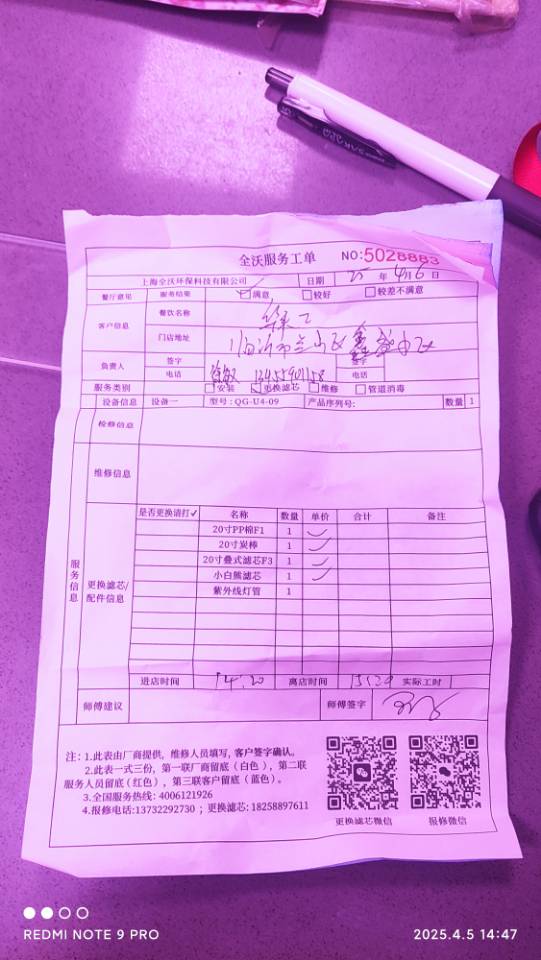 全沃服务工单 NO:5028883
上海全沃环保科技有限公司 日期 25 年 4月 6 日
餐厅意见 服务结果 满意 较好 较差不满意
客户信息 餐饮名称
门店地址 临沂市兰山区
负责人 签字 签字
电话 电话
服务类别 安装 更换滤芯 维修 管道消毒
设备信息 设备一 型号:QG-U4-09 产品序列号: 数量 1
检修信息
维修信息
服务信息
更换滤芯/配件信息
是否更换请打✓ 名称 数量 单价 合计 备注
20寸PP棉F1 1
20寸炭棒 1
20寸叠式滤芯F3 1
小白熊滤芯 1
紫外线灯管 1
进店时间 14:20 离店时间 15:20 实际工时 1
师傅建议 师傅签字
注: 1.此表由厂商提供, 维修人员填写, 客户签字确认。
2.此表一式三份, 第一联厂商留底(白色), 第二联
服务人员留底(红色), 第三联客户留底(蓝色)。
3.全国服务热线: 4006121926
4.报修电话:13732292730 ; 更换滤芯: 18258897611
更换滤芯微信 报修微信
REDMI NOTE 9 PRO
2025.4.5 14:47